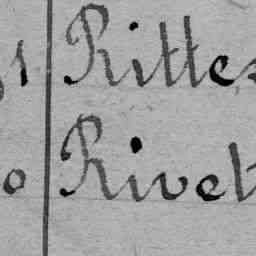 1 Ritter
0 Rivet